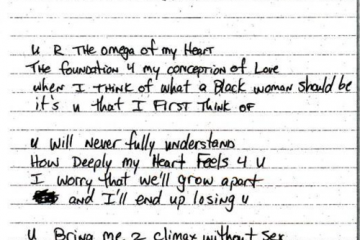 U R THE omega of my Heart
The foundation 4 my conception of Love
when I THINK of what a Black woman should be
it's u that I FIRST Think OF
u will Never fully understand
How Deeply my Heart Feels 4 U
I worry that we'll grow apart
and I'll end up losing u
U Bring me 2 climax without sex